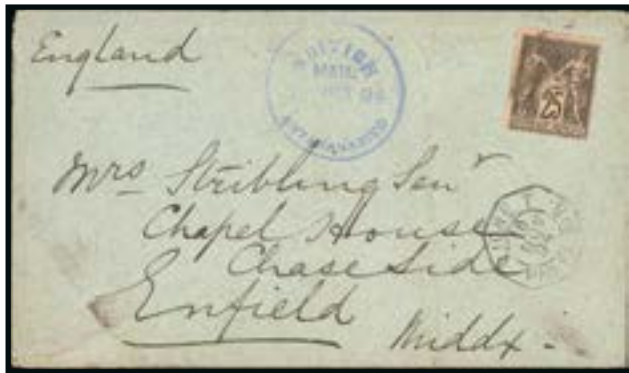 England
BRITISH
MAIL
ANTANANARIVO
25
Mrs Stribling Senr
Chapel House
Chase Side
Enfield
Middx.